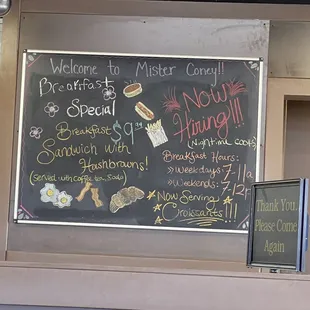 Welcome to Mister Coney!!
Breakfast
Special
Breakfast $9
Sandwich with
Hashbrowns!
(served with coffee, tea, soda)
Now
Hiring!!!
(Nightime cooks)
Breakfast Hours:
Weekdays: 7-11a
Weekends: 7-12p
Now Serving
Croissants!!!
Thank You
Please Come
Again